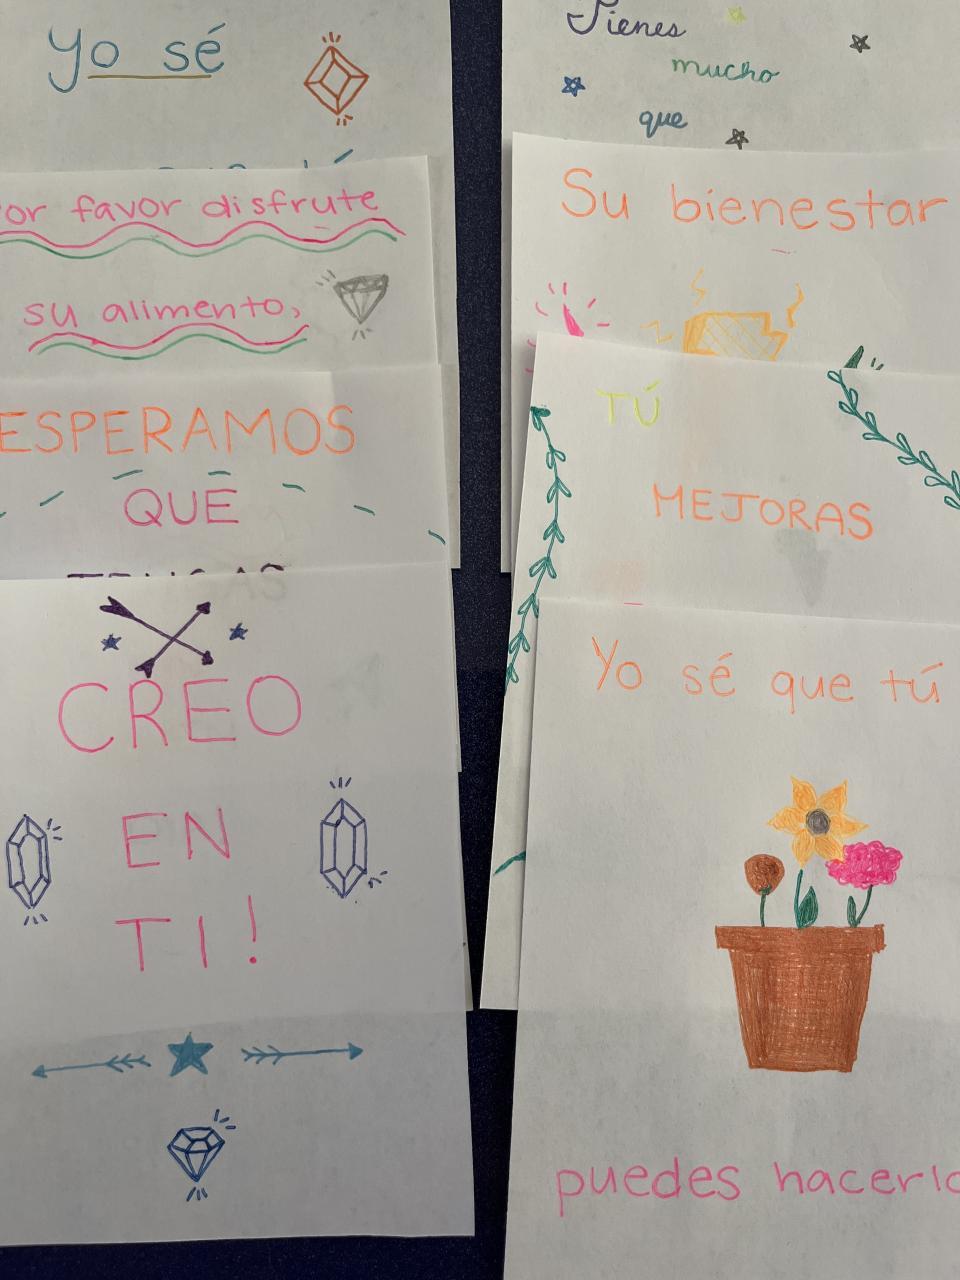 Yo sé
Por favor disfrute
su alimento,
ESPERAMOS
QUE
CREO
EN
TI!
Tienes
mucho
que
Su bienestar
TÚ
MEJORAS
Yo sé que tú
puedes hacerlo